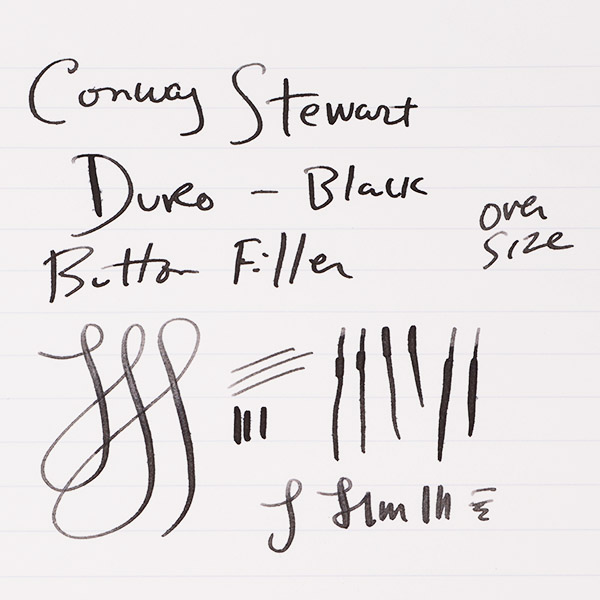 Conway Stewart
Duro - Black
Button Filler
over
size